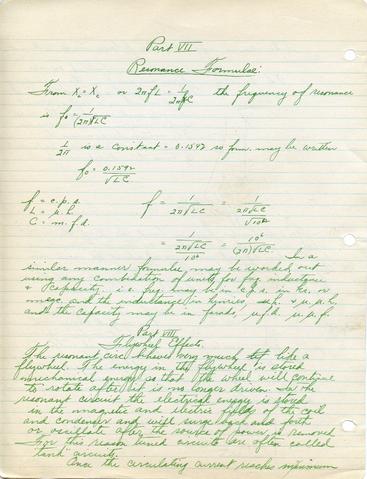 Part VII
Resonance Formulae:
From XL = Xc or 2πfL = 1/2πfC the frequency of resonance
is fo = 1/(2π√LC)
1/2π is a constant = 0.1592 so form. may be written
fo = 0.1592/√LC
f = c.p.s. f = 1/2π√LC = 1/2π√LC/√10¹²
L = μ.h.
C = m.f.d. = 1/2π√LC/10⁶ = 10⁶/(2π)√LC
In a
similar manner formulae may be worked out
using any combination of units for freq. inductance
& capacity, i.e. freq. may be in c.p.s. or kc. or
megc. and the inductance in henries m.h. & μ.h.
and the capacity may be in farads, μfd. μμf.
Part VIII
Flywheel Effects.
The resonant circ. behaves very much like a
flywheel. The energy in the flywheel is stored
mechanical energy so that the wheel will continue
to rotate after it is no longer driven. In the
resonant circuit the electrical energy is stored
in the magnetic and electric fields of the coil
and condenser and will surge back and forth
or oscillate after the source of power is removed.
For this reason tuned circuits are often called
"tank" circuits.
Once the circulating current reaches maximum